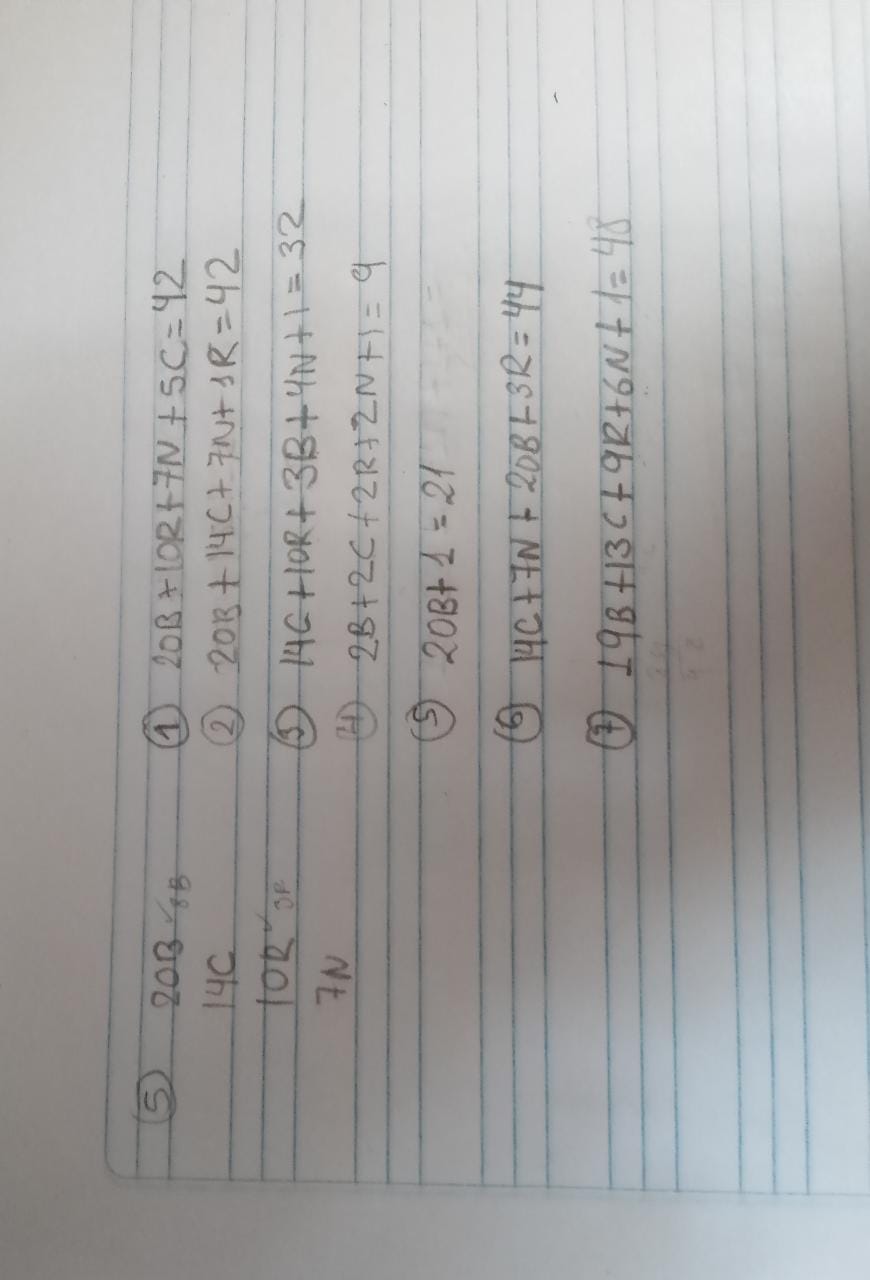 ⑤ 20B ✓ 8B
14C
10R ✓ 3R
7N
① 20B+10R+7N+5C=42
② 20B+14C+7N+1R=42
③ 14C+10R+3B+4N+1=32
④ 2B+2C+2R+2N+1=9
⑤ 20B+1=21
⑥ 14C+7N+20B+3R=44
⑦ 19B+13C+9R+6N+1=48